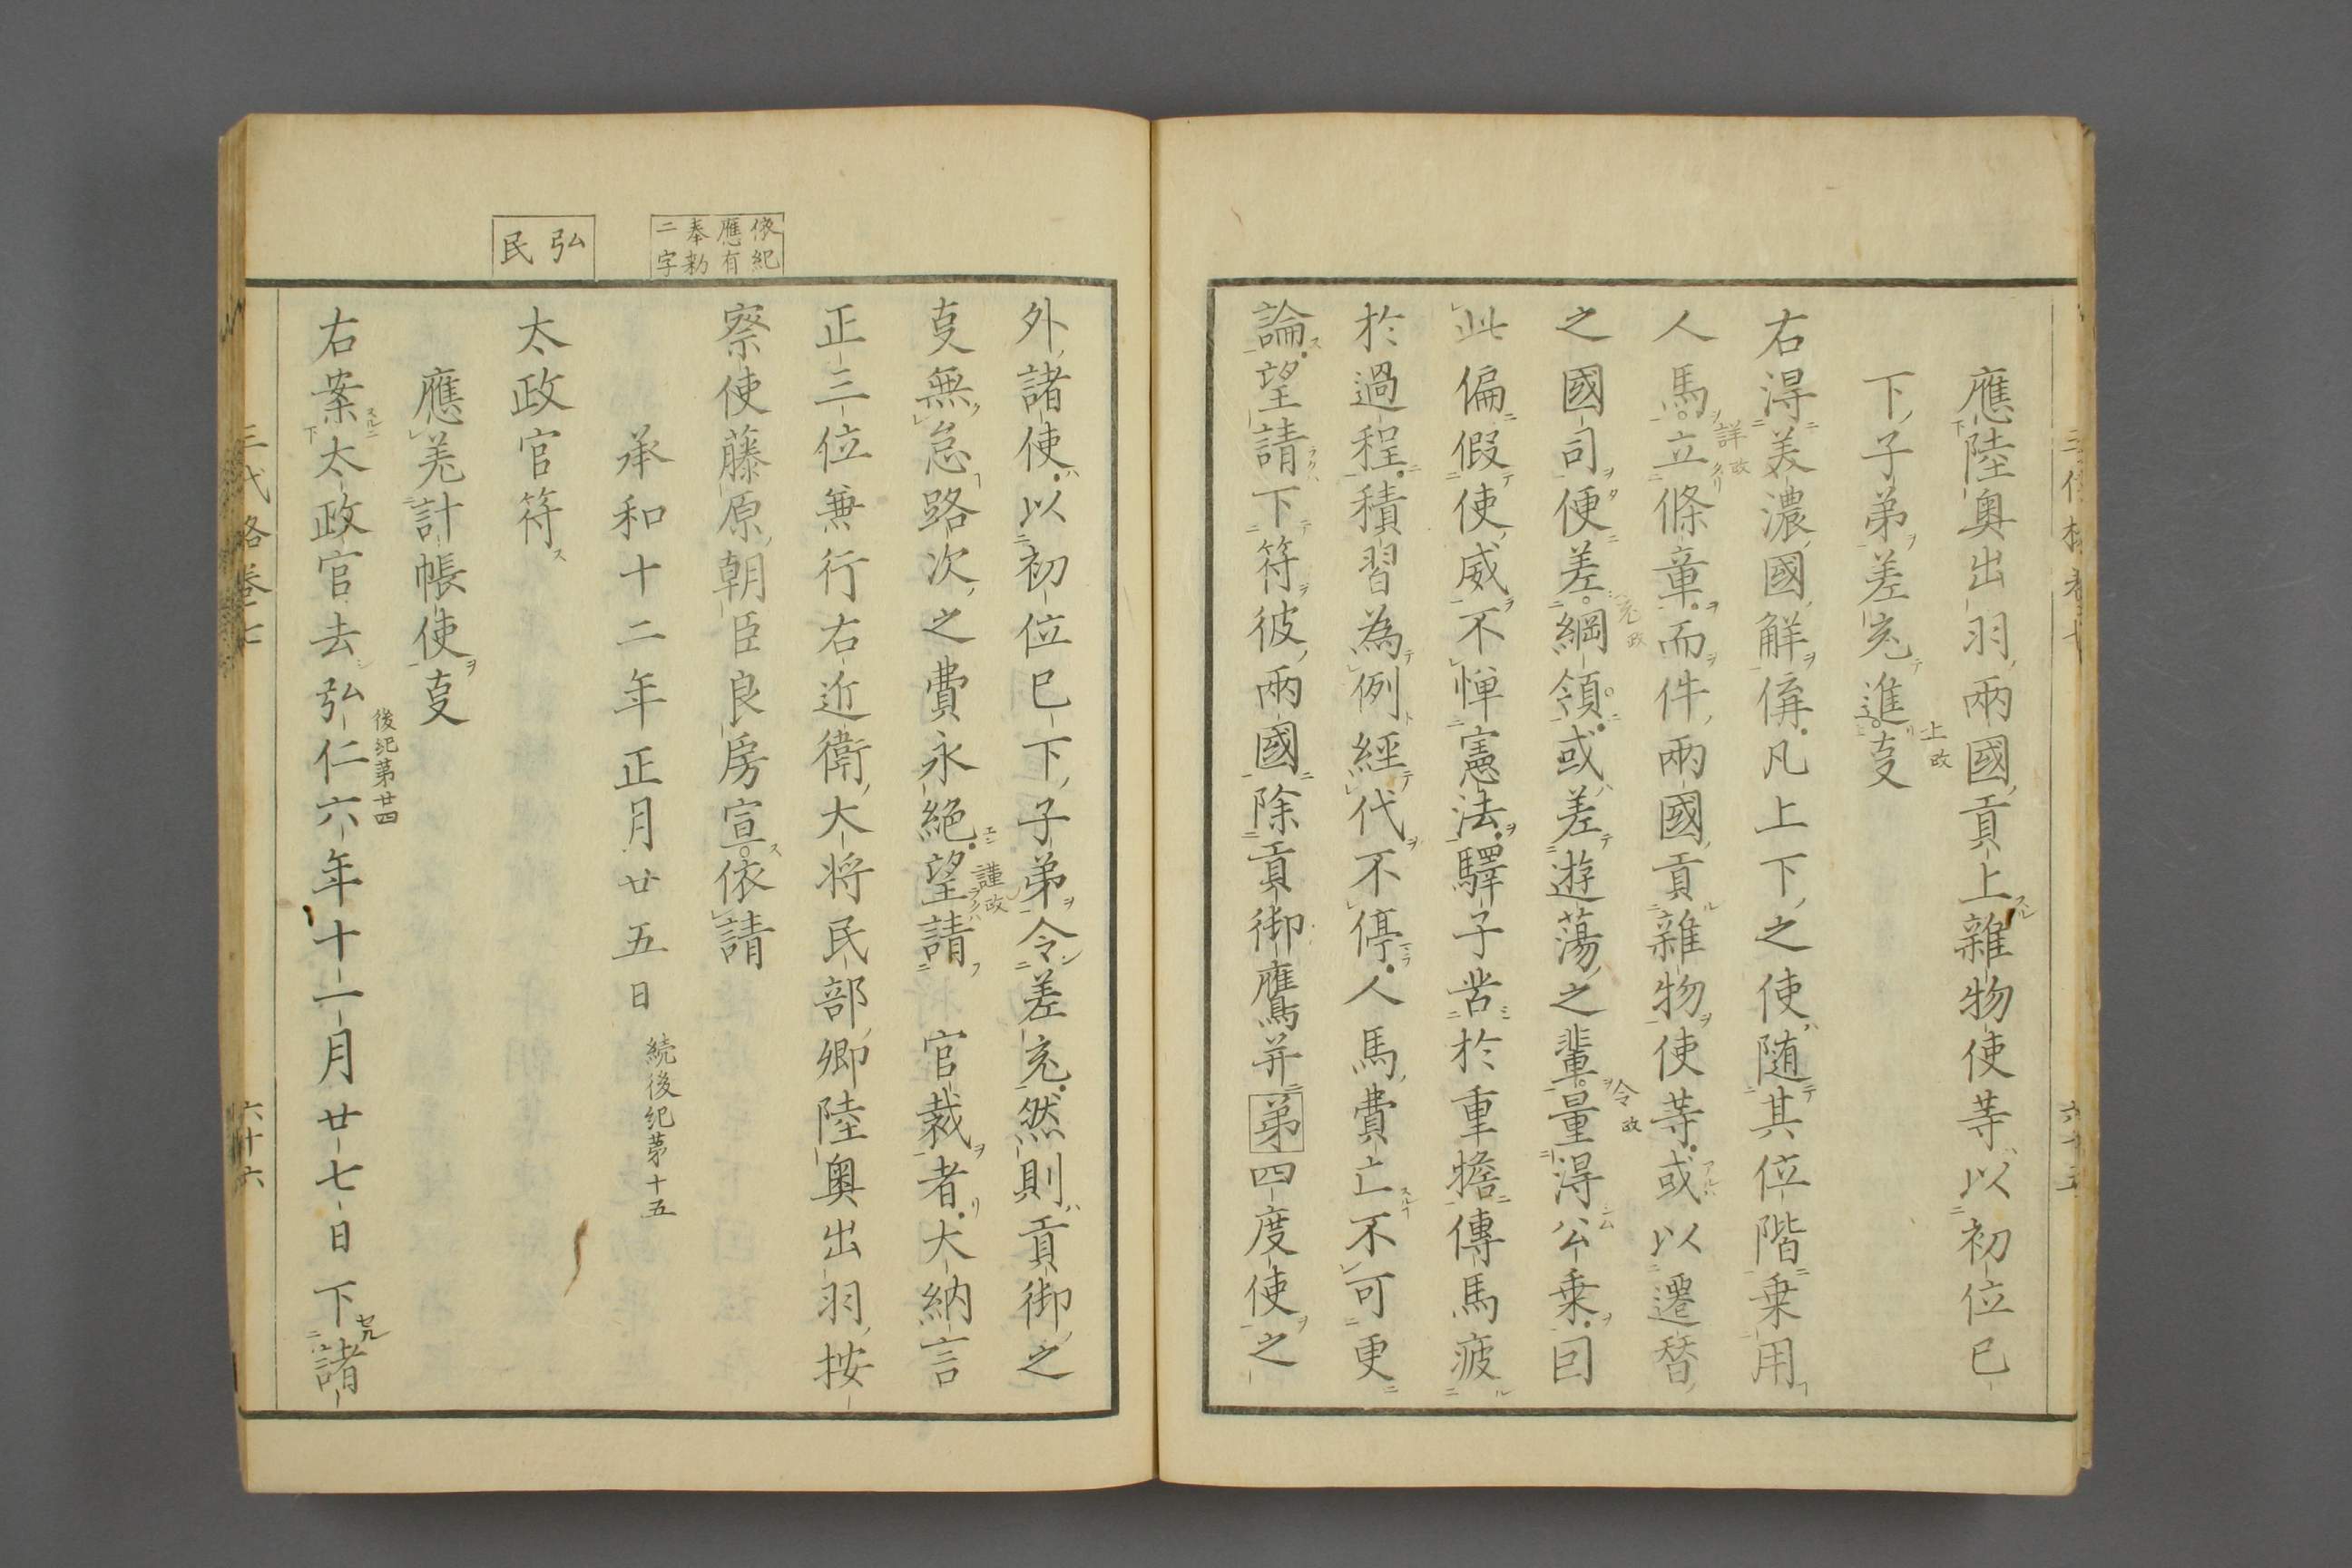 應陸奥出羽兩國貢上雜物使等以初位已
下子弟差充進事
上政
右得美濃國解偁凡上下之使随其位階乗用
人馬立條章而件兩國貢雜物使等或以遷替
詳政
之國司便差綱領或差遊蕩之輩量得公乗囙
充政
令政
此偏假使威不憚憲法驛子苦於重擔傳馬疲
於過程積習為例經代不停人馬費亡不可更
論望請下符彼兩國除貢御鷹并第四度使之
外諸使以初位已下子弟令差充然則貢御之
事無怠路次之費永絕望請 官裁者大納言
謹政
正三位兼行右近衛大将民部卿陸奥出羽按
察使藤原朝臣良房宣依請
依紀
應有
奉勅
二字
承和十二年正月廿五日 続後紀第十五
弘
民
太政官符
應差計帳使事
右案太政官去弘仁六年十一月廿七日下諸
後紀第廿四
三代格卷七
六十六